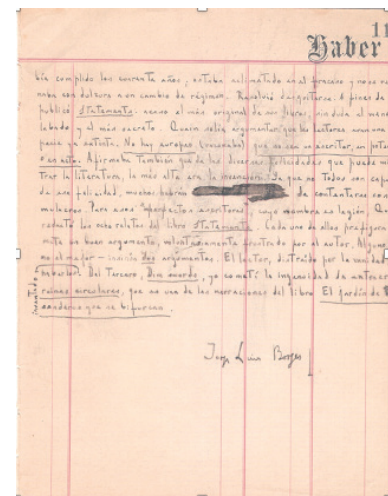 11
Haber
bía cumplido los cuarenta años; estaba aclimatado en el fracaso y no se
naba con dulzura a un cambio de régimen. Resolvió desquitarse. A fines de
publicó Statements: acaso el más original de sus libros, sin duda el menos
labado y el más secreto. Quain solía argumentar que los lectores eran una
pecie ya extinta. No hay europeo (razonaba) que no sea un escritor, en poten
o en acto. Afirmaba también que de las diversas felicidades que puede
trar la literatura, la más alta era la invención. Ya que no todos son capa
de esa felicidad, muchos habrán de contentarse con
mulacros. Para esos "imperfectos escritores", cuyo nombre es legión, Q
redactó los ocho relatos del libro Statements. Cada uno de ellos prefigura
mite un buen argumento, voluntariamente frustrado por el autor. Alguno
no el mejor — insinúa dos argumentos. El lector, distraído por la vanidad
inventado
haberlos. Del tercero, Dim swords, yo cometí la ingenuidad de extraer
ruinas circulares, que es una de las narraciones del libro El jardín de
senderos que se bifurcan.
Jorge Luis Borges